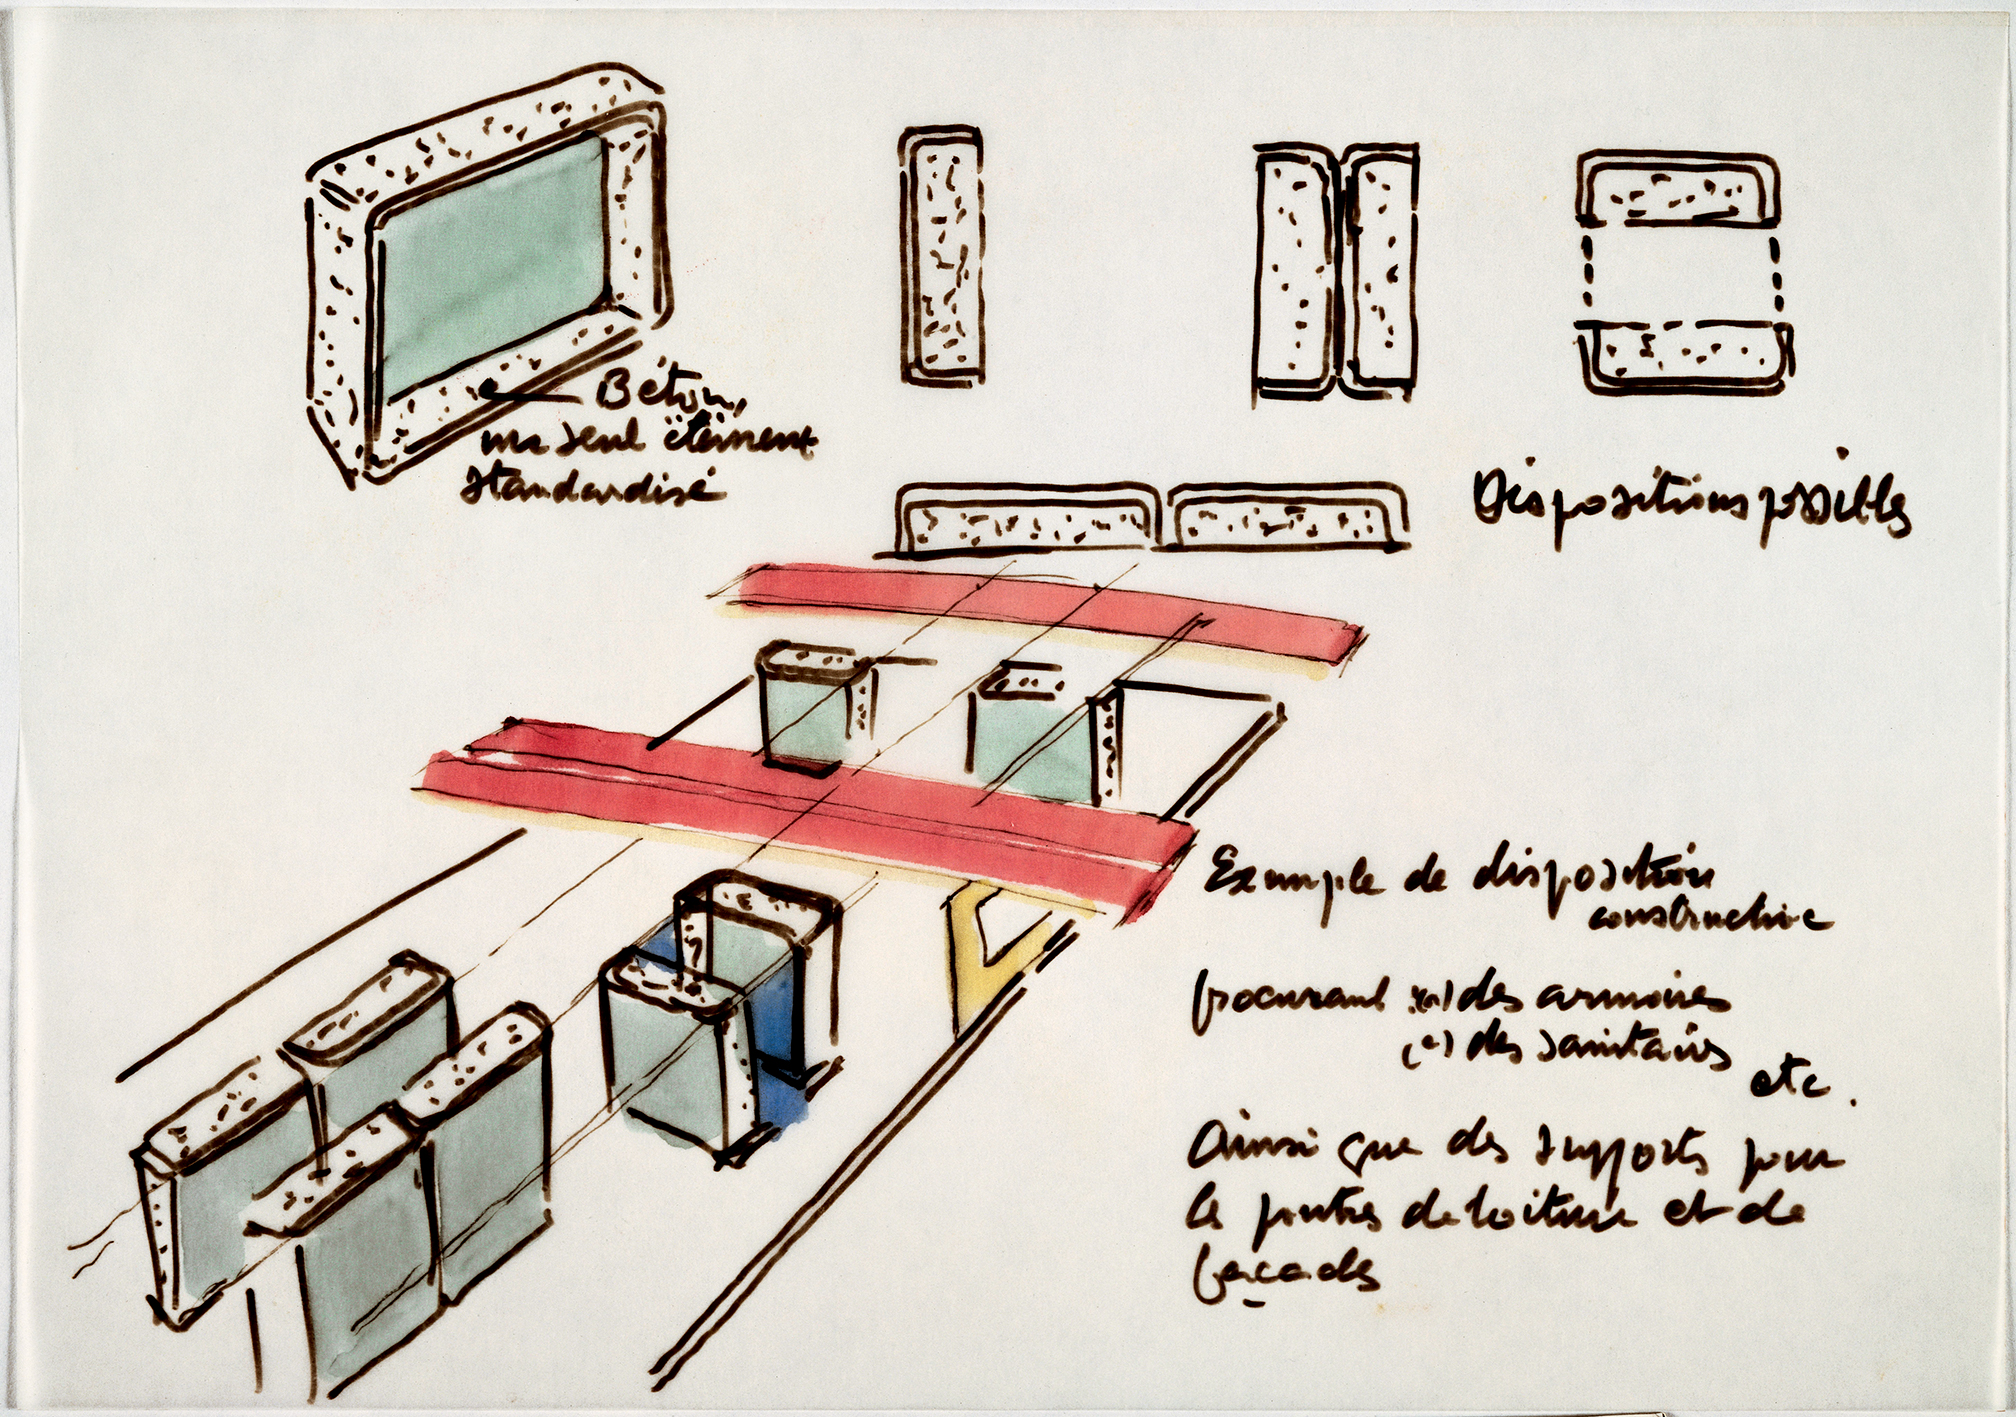 Béton,
un seul élément
standardisé
Dispositions possibles
Exemple de disposition
constructive
procurant des armoires
des sanitaires
etc.
Ainsi que des supports pour
les poutres de toiture et de
façades